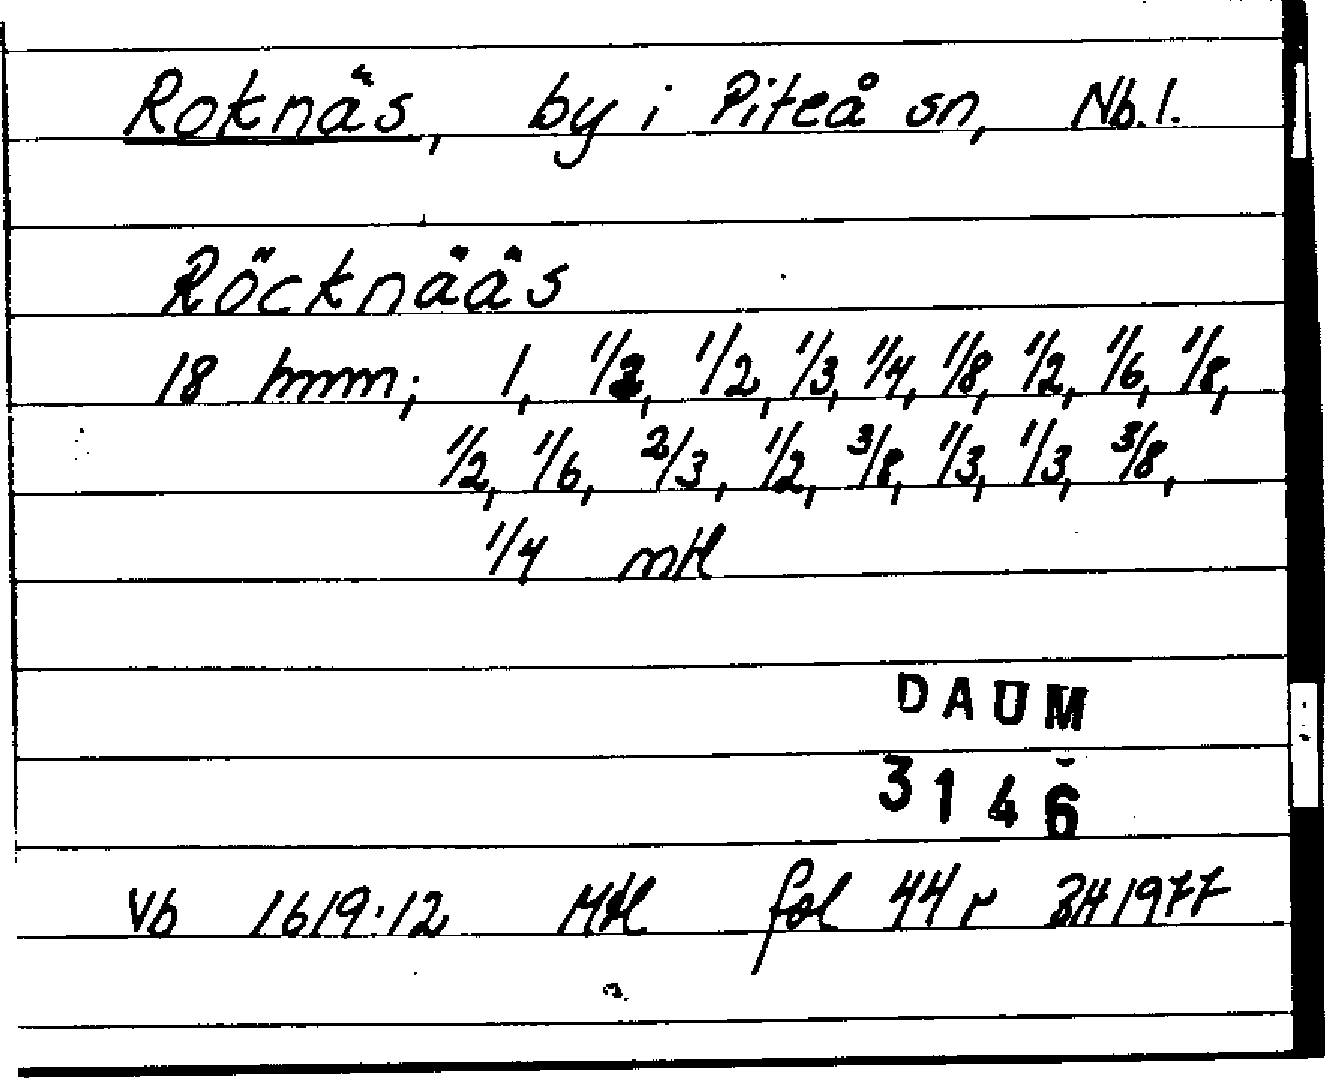 Roknäs, by i Piteå sn, Nb.l.
Röcknääs
18 hmm; 1, 1/2, 1/2, 1/3, 1/4, 1/8, 1/2, 1/6, 1/8,
1/2, 1/6, 2/3, 1/2, 3/8, 1/3, 1/3, 3/8,
1/4 mtl
DAUM
3146
Vb 1619:12 Mtl fol 44 r BH 1977